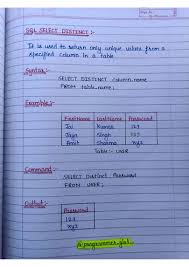 SQL SELECT DISTINCT :-
It is used to return only unique values from a
specified column in a table
Syntax :-
SELECT DISTINCT column_name
FROM table_name;
Example :-
FirstName LastName Password
Jai Kumar 123
Jaya Singh 123
Amit Sharma xyz
Table :- USER
Command :-
SELECT Distinct Password
FROM USER;
Output :-
Password
123
xyz